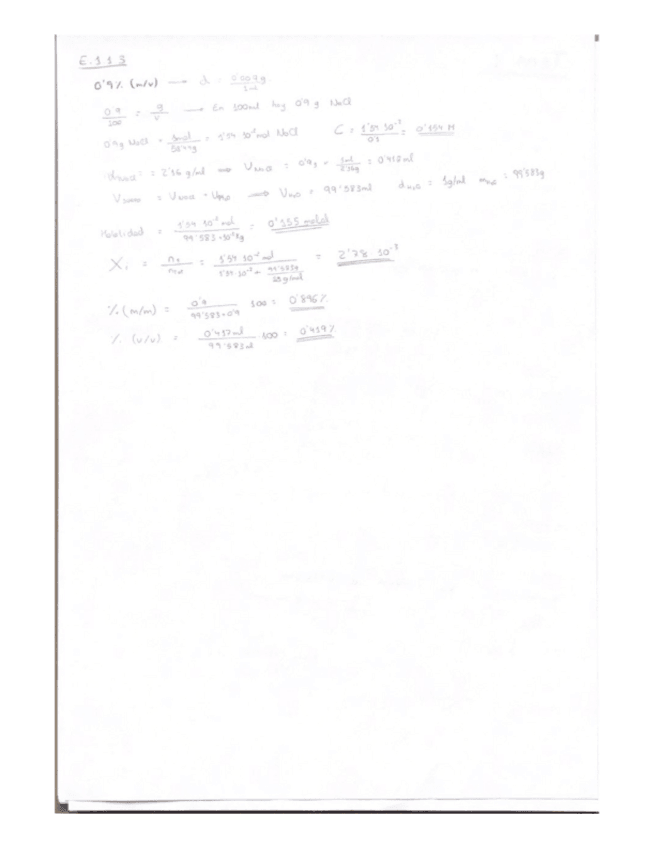 E.113
0'9% (m/v) → d = 0'009g / 1ml
0'9/100 = g/v → En 100ml hay 0'9 g NaCl
0'9g NaCl · 1mol/58'44g = 1'54 10⁻² mol NaCl C = 1'54 10⁻²/0'1 = 0'154 M
d NaCl = 2'16 g/ml ⇒ V NaCl = 0'9g · 1ml/2'16g = 0'417ml
V = V NaCl + V H₂O → V H₂O = 99'583ml d H₂O = 1g/ml m H₂O = 99'583g
Molalidad = 1'54 10⁻² mol / 99'583 · 10⁻³kg = 0'155 molal
X₁ = n₁/n = 1'54 10⁻² mol / 1'54·10⁻² + 99'583g/18 g/mol = 2'78 10⁻³
% (m/m) = 0'9 / 99'583+0'9 100 = 0'896%
% (v/v) = 0'417ml / 99'583ml 100 = 0'419%